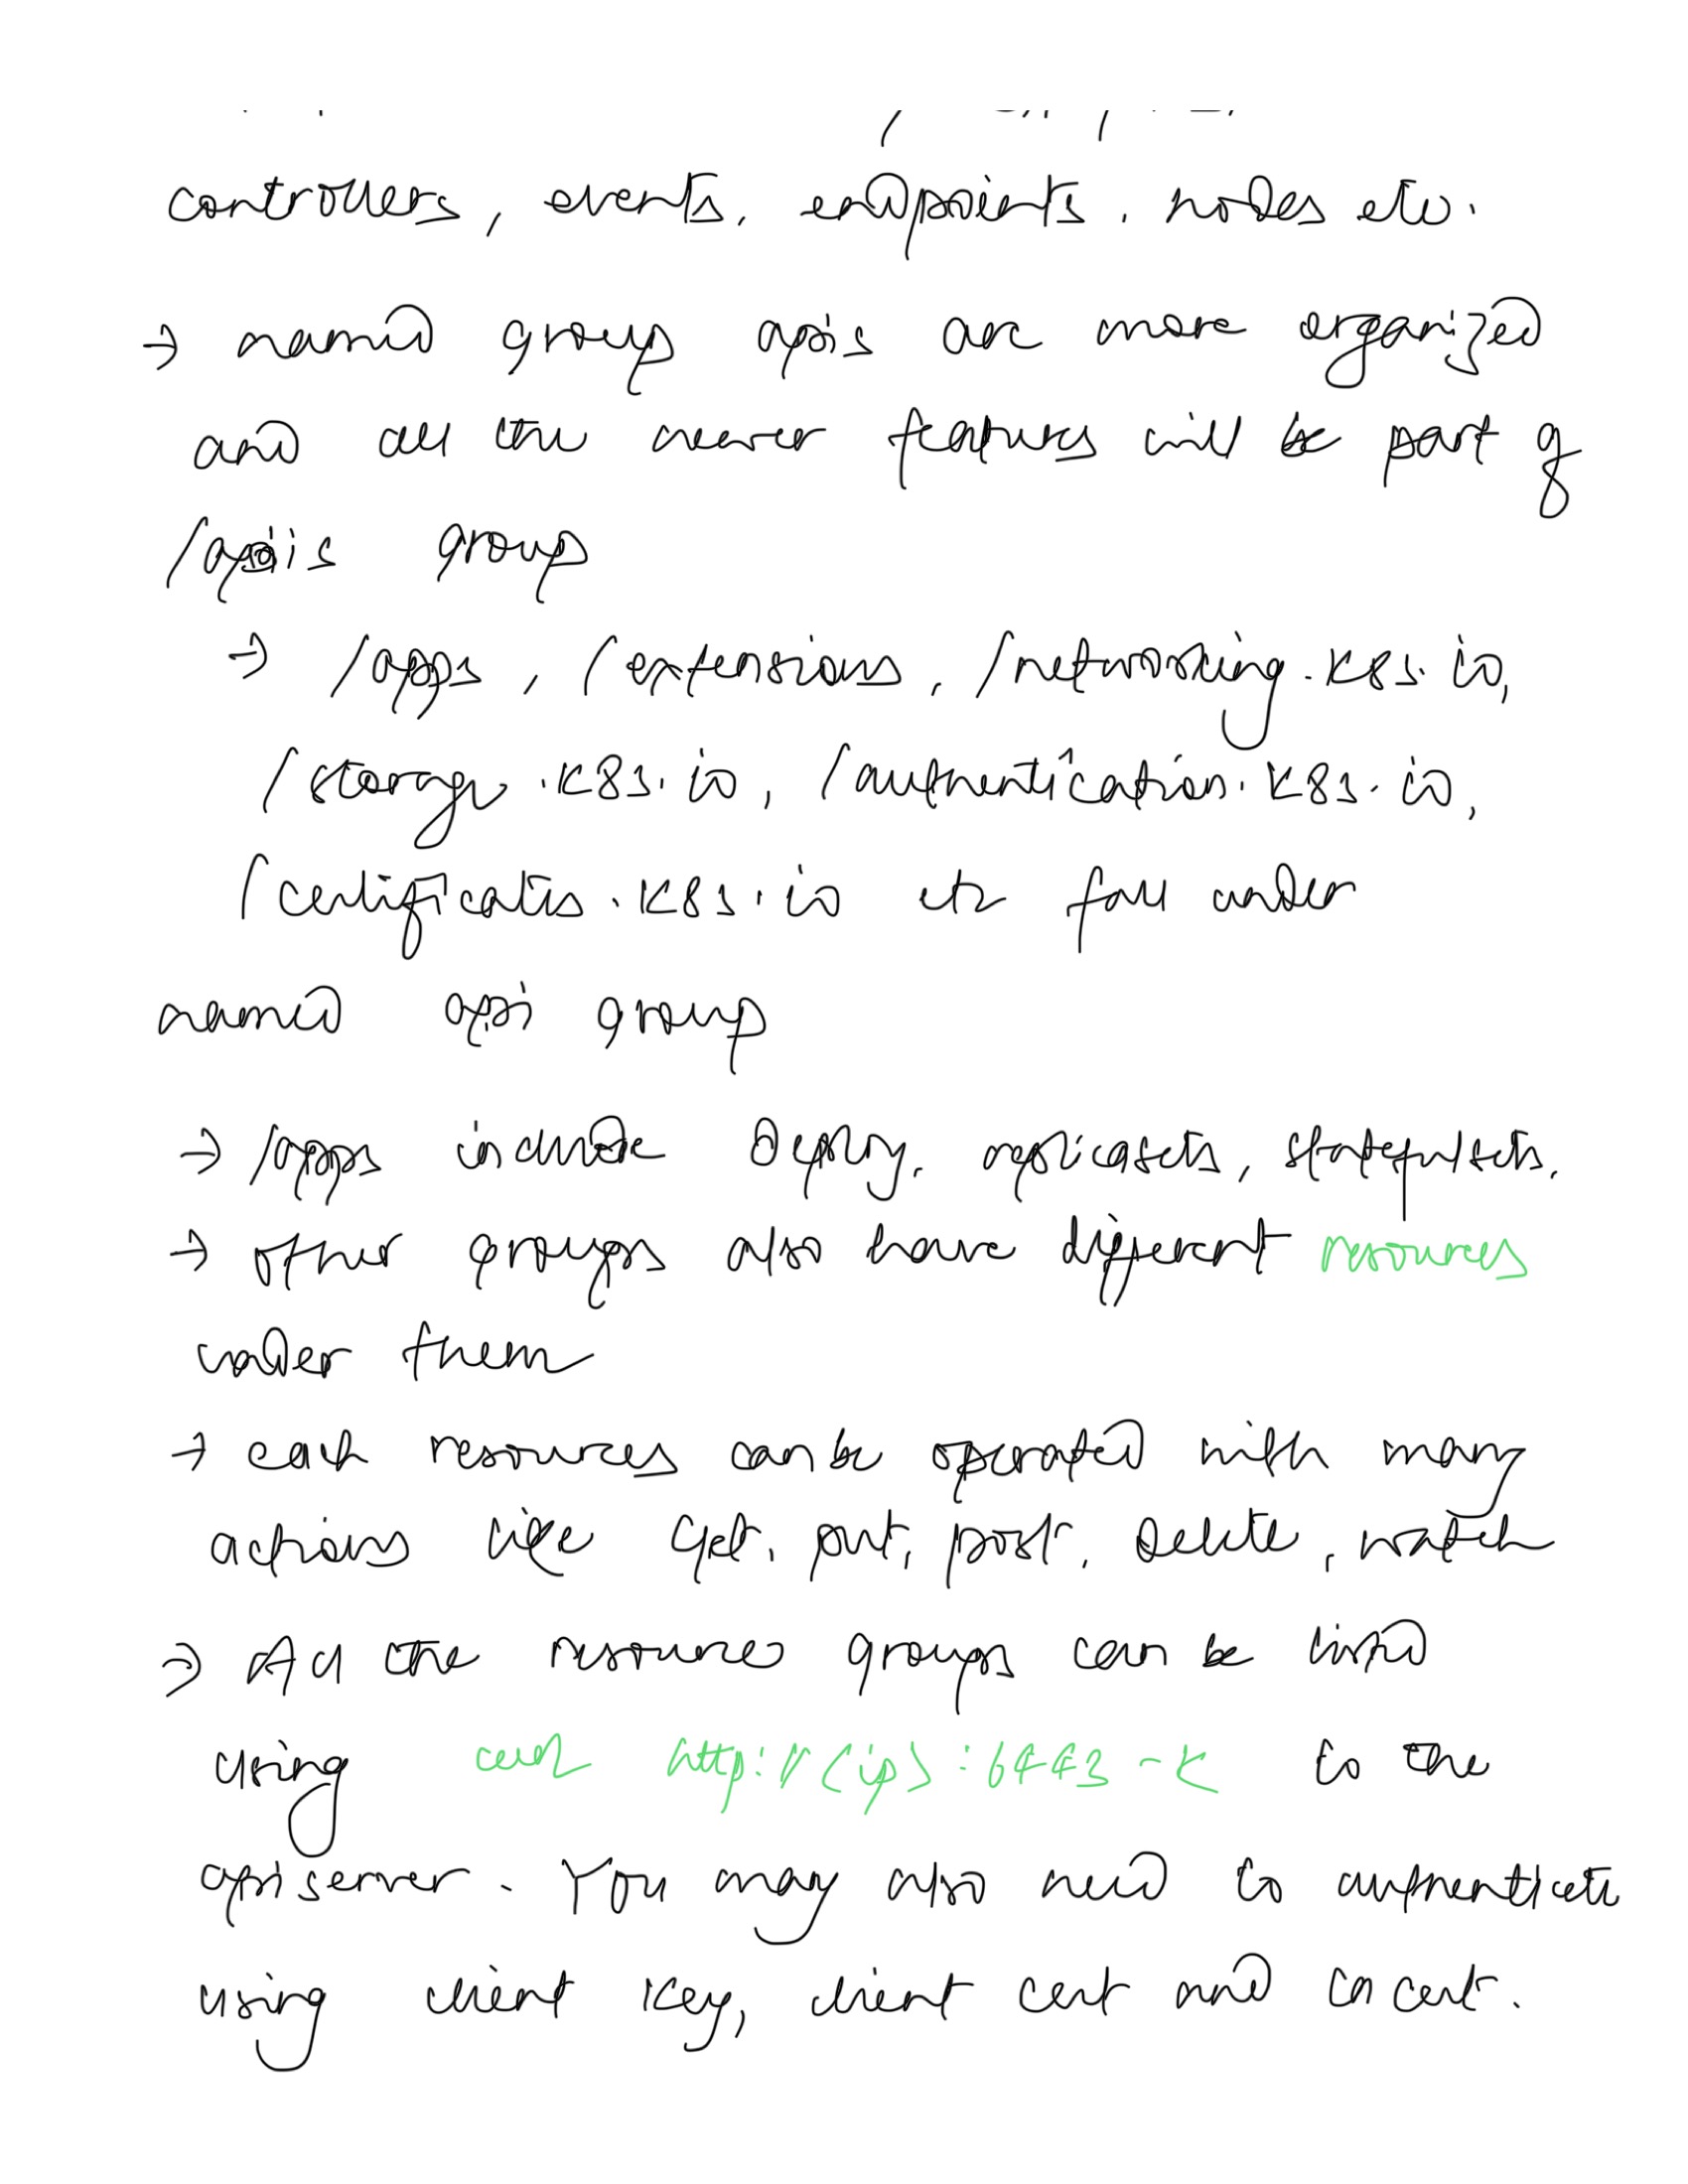 controllers, events, endpoints, nodes etc.
→ named group apis are more organized
and all the newer features will be part of
/apis group
→ /apps, /extensions, /networking.k8s.io,
/storage.k8s.io, /authentication.k8s.io,
/certificates.k8s.io etc fall under
named api group
→ /apps include Deploy, replicasets, statefulsets.
→ other groups also have different resources
under them
→ each resources can be operated with many
actions like Get, put, post, Delete, watch
→ All the resource groups can be listed
using curl http://<ip>:6443 -k to the
apiserver. You may also need to authenticate
using client key, client cert and ca cert.